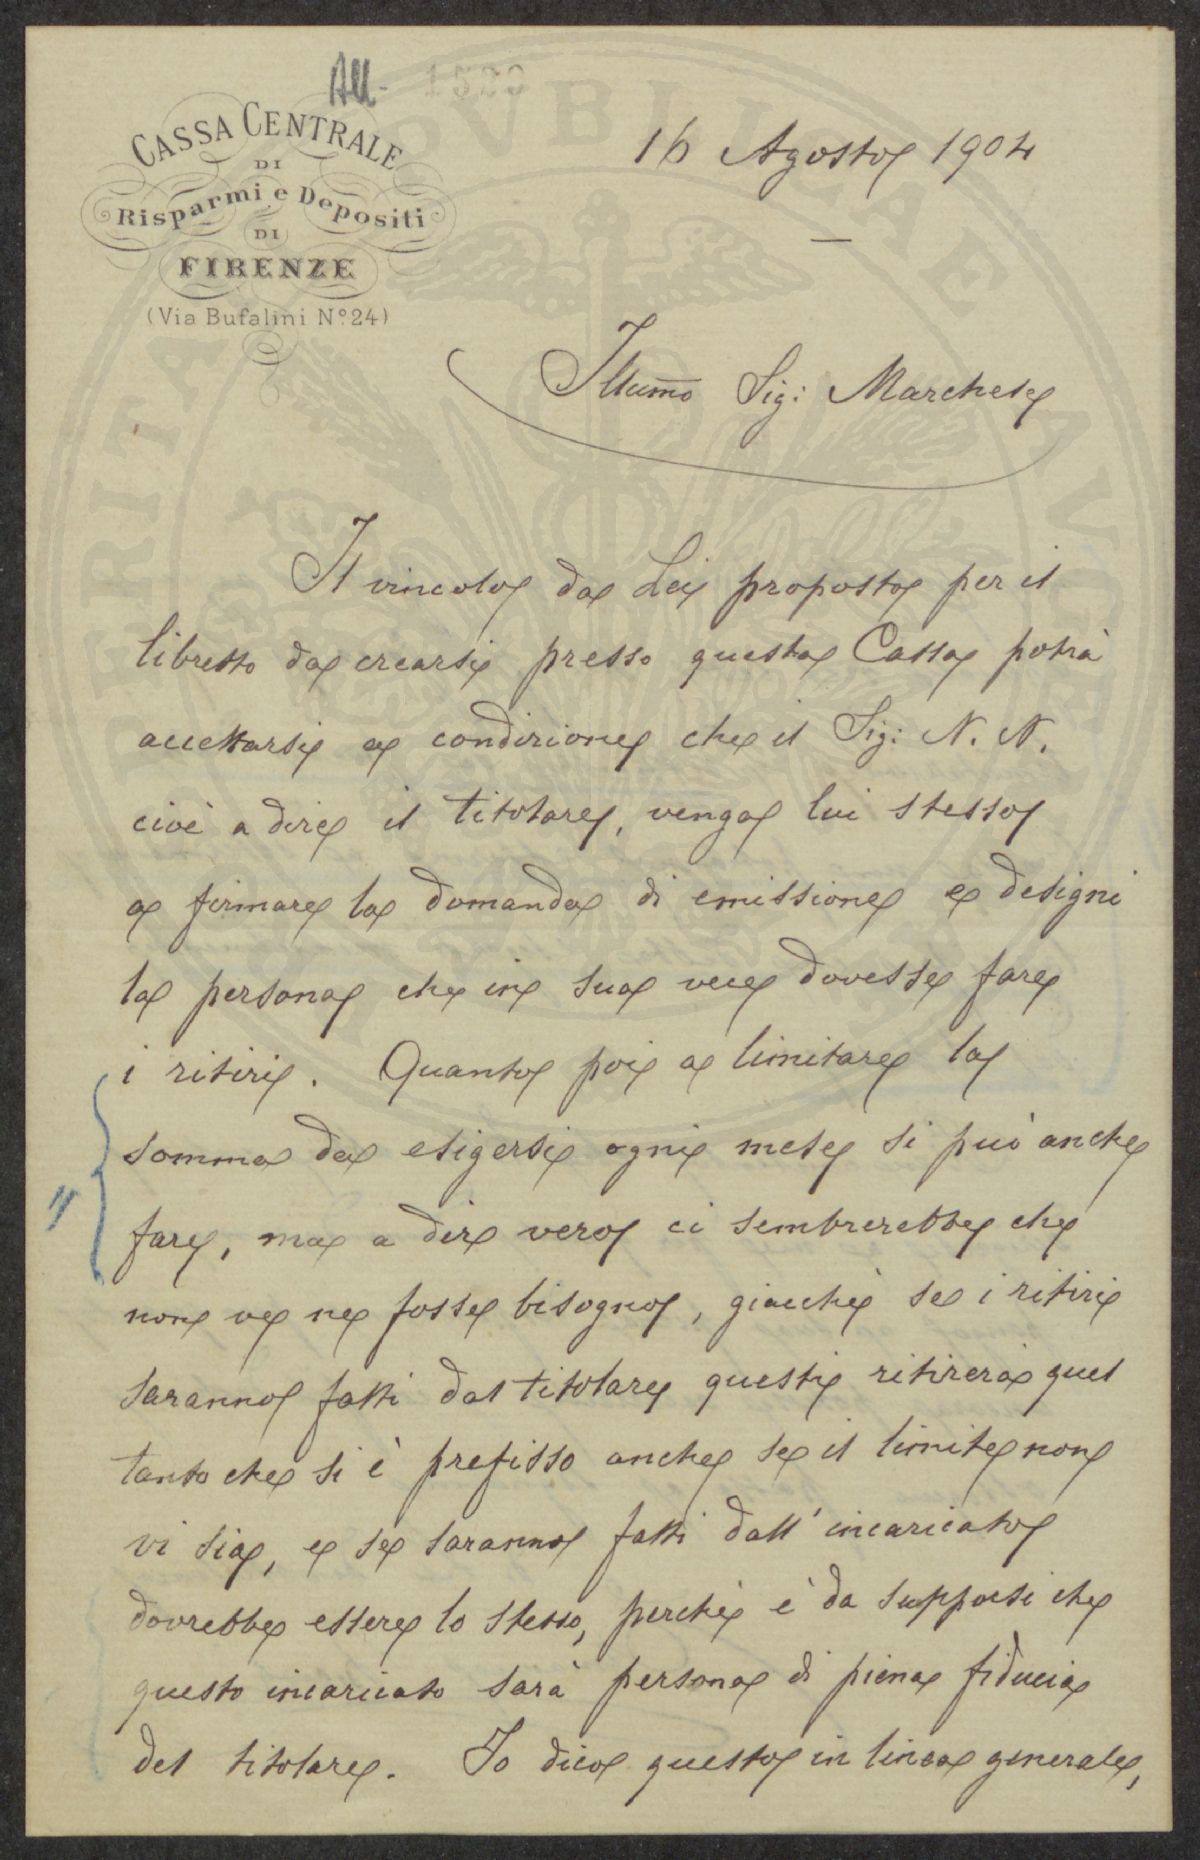 All.
CASSA CENTRALE
DI
Risparmi e Depositi
DI
FIRENZE
(Via Bufalini N.º 24)
16 Agosto 1904
Illumo Sig: Marchese
Il vincolo da Lei proposto per il
libretto da crearsi presso questa Cassa potrà
accettarsi a condizione che il Sig: N. N.
cioè a dire il titolare, venga lui stesso
a firmare la domanda di emissione e designi
la persona che in sua vece dovesse fare
i ritiri. Quanto poi a limitare la
somma da esigersi ogni mese si può anche
fare, ma a dire vero ci sembrerebbe che
non ve ne fosse bisogno, giacchè se i ritiri
saranno fatti dal titolare questi ritirerà quel
tanto che si è prefisso anche se il limite non
vi sia, e se saranno fatti dall'incaricato
dovrebbe essere lo stesso, perchè è da supporsi che
questo incaricato sarà persona di piena fiducia
del titolare. Io dico questo in linea generale,